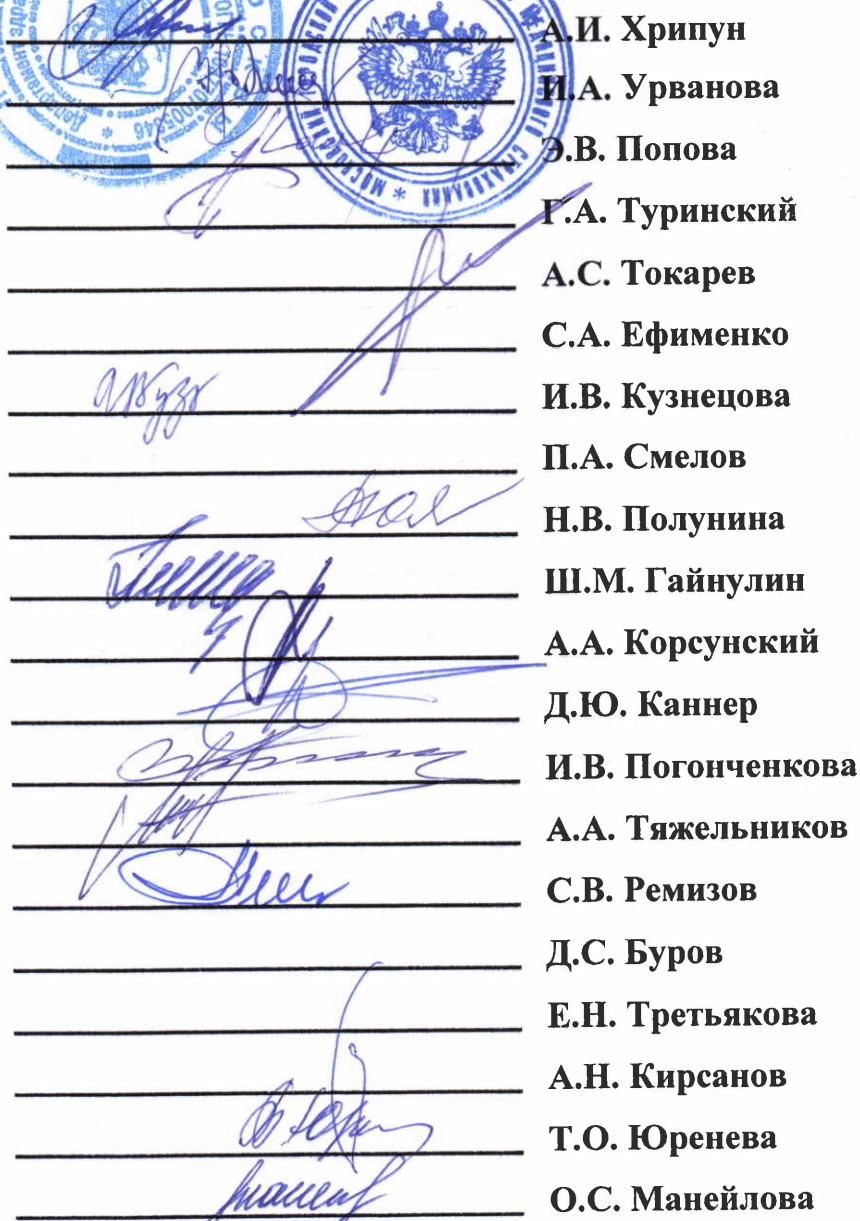 А.И. Хрипун
И.А. Урванова
Э.В. Попова
Г.А. Туринский
А.С. Токарев
С.А. Ефименко
И.В. Кузнецова
П.А. Смелов
Н.В. Полунина
Ш.М. Гайнулин
А.А. Корсунский
Д.Ю. Каннер
И.В. Погонченкова
А.А. Тяжельников
С.В. Ремизов
Д.С. Буров
Е.Н. Третьякова
А.Н. Кирсанов
Т.О. Юренева
О.С. Манейлова